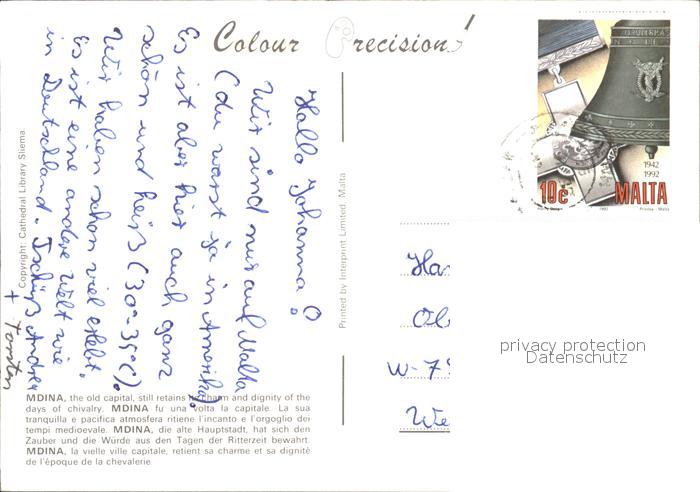 Colour Precision
Hallo Johanna!
Wir sind nur auf Malta
(du warst ja in Amerika).
Es ist aber hier auch ganz
schön und heiß (30°-35°C).
Wir haben schon viel erlebt.
Es ist eine andere Welt wie
in Deutschland. Tschüß Andrea
+ Torsten
Copyright: Cathedral Library Sliema.
Printed by Interprint Limited. Malta
MDINA, the old capital, still retains its charm and dignity of the
days of chivalry. MDINA fu una volta la capitale. La sua
tranquilla e pacifica atmosfera ritiene l'incanto e l'orgoglio dei
tempi medioevale. MDINA, die alte Hauptstadt, hat sich den
Zauber und die Würde aus den Tagen der Ritterzeit bewahrt.
MDINA, la vielle ville capitale, retient sa charme et sa dignité
de l'époque de la chevalerie.
1942
1992
10c MALTA
1992 Printex - Malta
Ha
Ol
W-7
Wie
privacy protection
Datenschutz